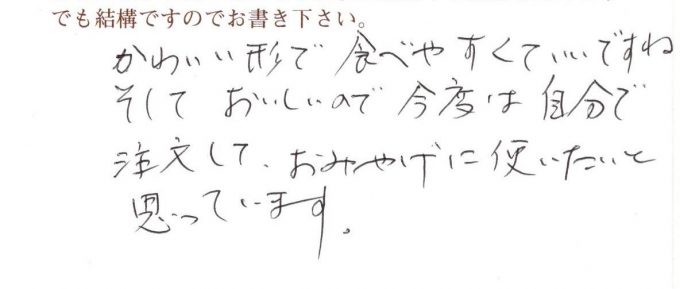 でも結構ですのでお書き下さい。
かわいい形で 食べやすくていいですね
そして おいしいので 今度は自分で
注文して、おみやげに使いたいと
思っています。